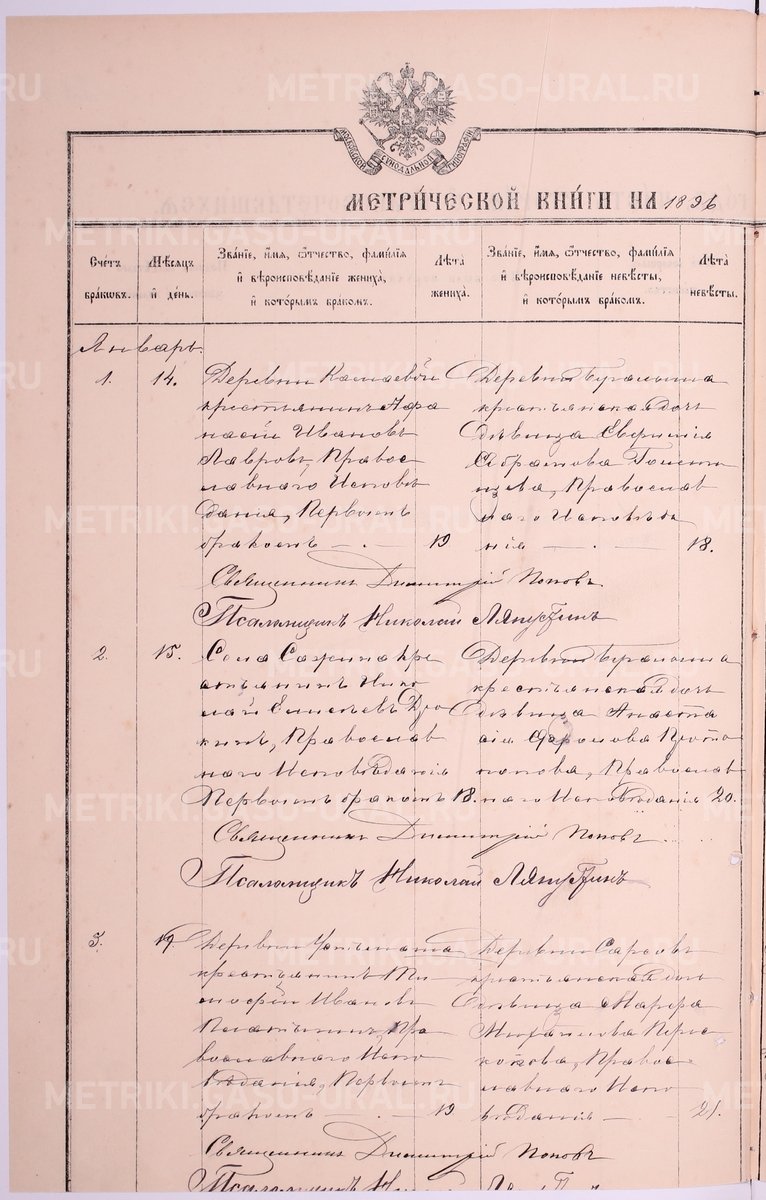 METRIKI.GASO-URAL.RU
МОСКОВСКОЙ СИНОДАЛЬНОЙ ТИПОГРАФІИ
МЕТРИЧЕСКОЙ КНИГИ НА 1896
Счетъ браковъ.
Мѣсяцъ и день.
Званіе, имя, отчество, фамилія и вѣроисповѣданіе жениха, и которымъ бракомъ.
Лѣта жениха.
Званіе, имя, отчество, фамилія и вѣроисповѣданіе невѣсты, и которымъ бракомъ.
Лѣта невѣсты.
Январь.
1. 14.
Деревни
крестьянинъ Афа
насій Ивановъ
Лавровъ, Правос
лавнаго Исповѣ
данія, Первымъ
бракомъ — 19
Деревни
крестьянская дочь
дѣвица Евгенія
Абрамова
Православ
наго Исповѣда
нія — 18.
Священникъ Димитрій Поповъ
Псаломщикъ Николай Ляпустинъ
2. 15.
Села Сажина кре
стьянинъ Нико
лай Елисѣевъ
Православ
наго Исповѣданія
Первымъ бракомъ 18.
Деревни
крестьянская дочь
дѣвица Анаста
сія
Православ
наго Исповѣданія 20.
Священникъ Димитрій Поповъ
Псаломщикъ Николай Ляпустинъ
3. 17.
Деревни
крестьянинъ Ти
мофей Ивановъ
Пра
вославнаго Испо
вѣданія, Первымъ
бракомъ — 19
Деревни
крестьянская дочь
дѣвица Марфа
Михаилова
Правос
лавнаго Испо
вѣданія — 21.
Священникъ Димитрій Поповъ
Псаломщикъ